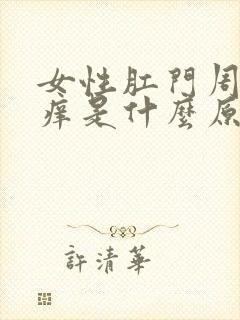 女性肛門周
痒是什麼原
許清華